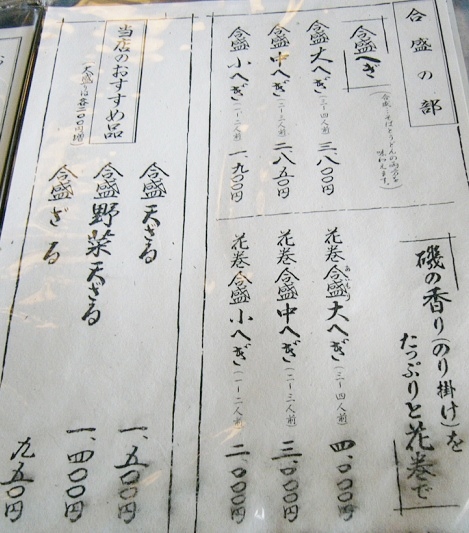 合盛の部
合盛へぎ
(合盛…そばとうどんの両方を
味わえます。)
合盛大へぎ(三〜四人前) 三、八〇〇円
合盛中へぎ(二〜三人前) 二、八五〇円
合盛小へぎ(一〜二人前) 一、九〇〇円
磯の香り(のり掛け)を
たっぷりと花巻で
花巻合盛大へぎ(三〜四人前) 四、〇〇〇円
あいもり
花巻合盛中へぎ(二〜三人前) 三、〇〇〇円
花巻合盛小へぎ(一〜二人前) 二、〇〇〇円
当店のおすすめ品
(大盛りは各二〇〇円増)
合盛天ざる 一、五〇〇円
合盛野菜天ざる 一、四〇〇円
合盛ざる 九五〇円